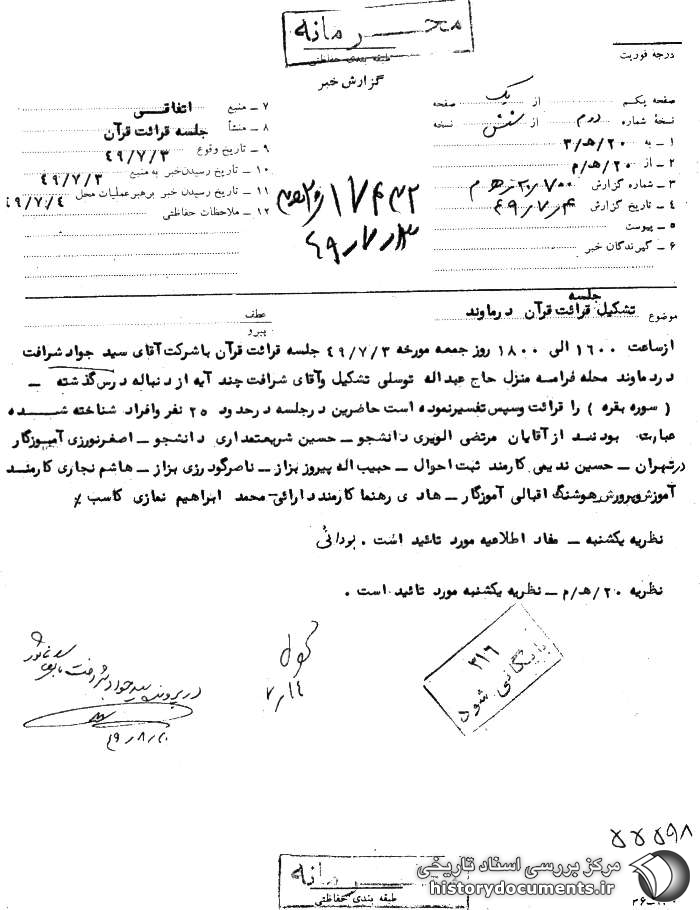 محرمانه
طبقه بندی حفاظتی
گزارش خبر
درجه فوریت
صفحه یکم از یک صفحه
نسخهٔ شماره دوم از شش نسخه
۱ ـ به ۲۰/هـ/۳
۲ ـ از ۲۰/هـ/م
۳ ـ شماره گزارش ۲۰۷۰۰ هـ م
۴ ـ تاریخ گزارش ۴۹/۷/۴
۵ ـ پیوست
۶ ـ گیرندگان خبر
۷ ـ منبع اتفاقی
۸ ـ منشأ جلسه قرائت قرآن
۹ ـ تاریخ وقوع ۴۹/۷/۳
۱۰ ـ تاریخ رسیدن خبر به منبع ۴۹/۷/۳
۱۱ ـ تاریخ رسیدن خبر برهبر عملیات محل ۴۹/۷/۴
۱۲ ـ ملاحظات حفاظتی
۱۷۶۴۲
جلسه
موضوع تشکیل قرائت قرآن دردماوند
عطف
پیرو
ازساعت ۱۶۰۰ الی ۱۸۰۰ روز جمعه مورخه ۴۹/۷/۳ جلسه قرائت قرآن باشرکت آقای سید جواد شرافت
دردماوند محله فرامه منزل حاج عبداله توسلی تشکیل وآقای شرافت چند آیه از دنباله درس گذشته ـ
( سوره بقره ) را قرائت وسپس تفسیرنموده است حاضرین درجلسه درحدود ۲۵ نفر وافراد شناخته شـــده
عبارت بودند از آقایان مرتضی الویری دانشجو ـ حسین شریعتمداری دانشجو ـ اصغرنورزی آموزگار
درتهران ـ حسین ندیمی کارمند ثبت احوال ـ حبیب اله پیروز بزاز ـ ناصرگودرزی بزاز ـ هاشم نجاری کارمند
آموزش وپرورش هوشنگ اقبالی آموزگار ـ هادی رهنما کارمند دارائی ـ محمد ابراهیم نمازی کاسب ٪
نظریه یکشنبه ـ مفاد اطلاعیه مورد تائید است . بودائی
نظریه ۲۰/هـ/م ـ نظریه یکشنبه مورد تائید است .
۳۱۶
بایگانی شود
۷/۱۴
در پرونده سید جواد شرافت بایگانی شود
۴۹/۸/۲۰
۵۵۵۹۸
محرمانه
طبقه بندی حفاظتی
مرکز بررسی اسناد تاریخی
historydocuments.ir